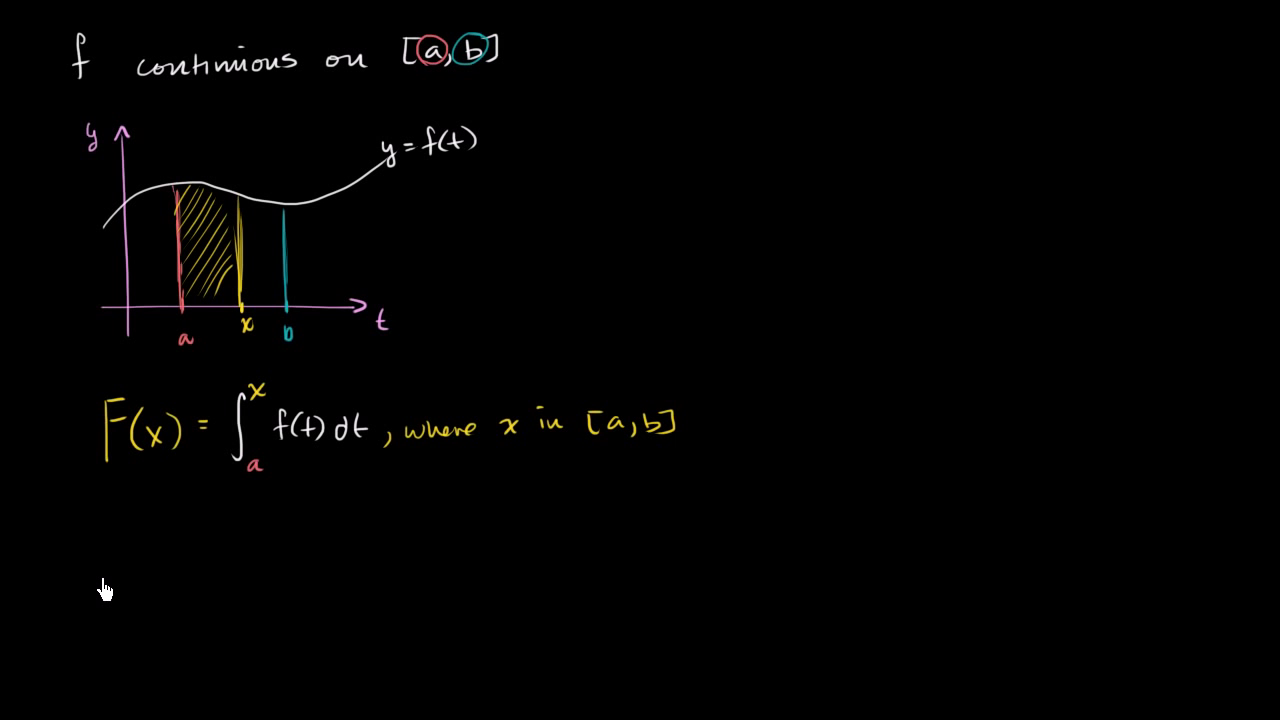 f continuous on [a,b]
y
y = f(t)
a
x
b
t
F(x) = ∫ₐˣ f(t) dt, where x in [a,b]